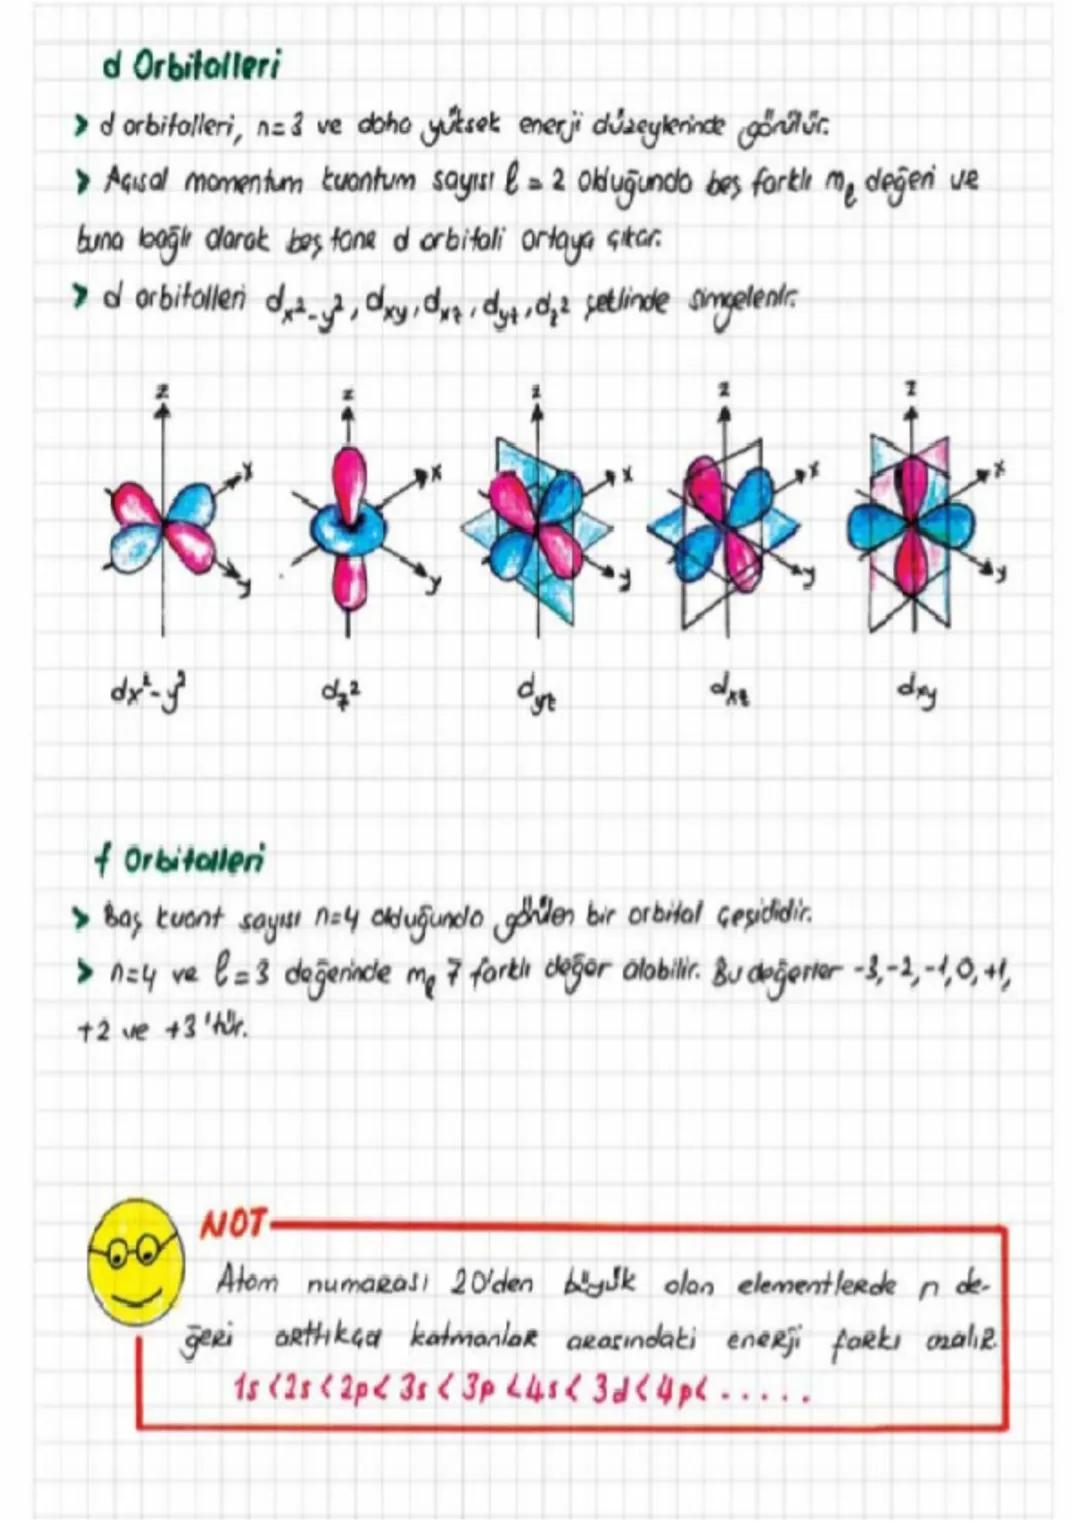 d Orbitalleri
> d orbitalleri, n=3 ve daha yüksek enerji düzeylerinde görülür.
> Açısal momentum kuantum sayısı ℓ = 2 olduğunda beş farklı mℓ değeri ve
buna bağlı olarak beş tane d orbitali ortaya çıkar.
> d orbitalleri dx²-y², dxy, dxz, dyz, dz² şeklinde simgelenir.
z z z z z
x x x x x
y y y y y
dx²-y² dz² dyz dxz dxy
f Orbitalleri
> Baş kuant sayısı n=4 olduğunda görülen bir orbital çeşididir.
> n=4 ve ℓ=3 değerinde mℓ 7 farklı değer alabilir. Bu değerler -3,-2,-1,0,+1,
+2 ve +3'tür.
NOT
Atom numarası 20'den büyük olan elementlerde n de-
ğeri arttıkça katmanlar arasındaki enerji farkı azalır.
1s<2s<2p<3s<3p<4s<3d<4p<.....